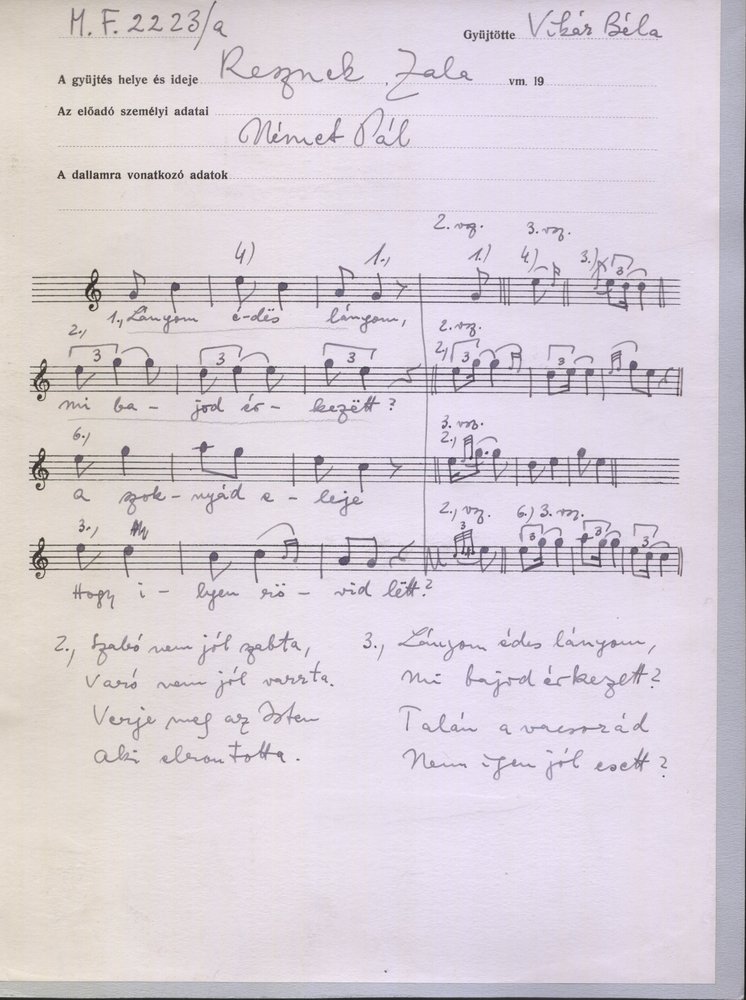 M. F. 2223/a
Gyüjtötte Vikár Béla
A gyüjtés helye és ideje Resznek Zala vm. 19
Az előadó személyi adatai
Német Pál
A dallamra vonatkozó adatok
2. vsz. 3. vsz.
4) 1., 1.) 4.) 3.) 3
1., Lányom é-dës lányom,
2., 2. vsz.
3 3 3 2) 3 3
mi ba - jod ér - kezëtt?
6., 3. vsz.
2.,
a szok - nyád e - leje
3., 2., vsz. 6.) 3. vsz.
3 3 3 3
Hogy i - lyen rö - vid lëtt?
2., Szabó nem jól zabta,
Varó nem jól varrta.
Verje meg az Isten
Aki elrontotta.
3., Lányom édes lányom,
Mi bajod érkezett?
Talán a vacsorád
Nem igen jól esett?